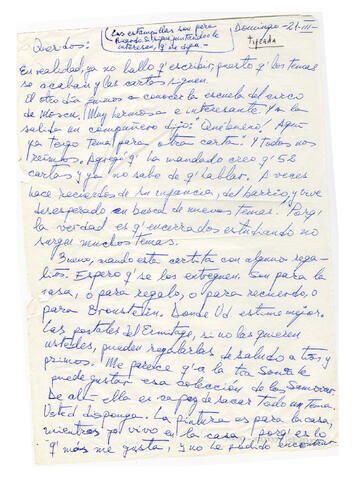 Las estampillas son para
Ricardo si sigue juntándolo le
interesan, q' de sgca-
Domingo - 21-III-
Tijeada
Queridos:
En realidad, ya no hallo q' escribir, puesto q' los temas
se acaban y las cartas siguen.
El otro día fuimos a conocer la escuela del circo
de Moscú. Muy hermosa e interesante. Y a la
salida un compañero dijo: "Qué bueno! Aquí
ya tengo tema para otra carta". Y todos nos
reímos. Agregó q' ha mandado creo q' 52
cartas y ya no sabe de q' hablar. A veces
hace recuerdos de su infancia, del barrio, y vive
desesperado en busca de nuevos temas. Porq'
la verdad es q' encerrados estudiando no
surgen muchos temas.
Bueno, mando esta cartita con algunos rega-
litos. Espero q' se los entreguen. Son para la
casa, o para regalo, o para recuerdo, o
para Bronstein. Donde Ud estime mejor.
Las postales del Ermitage, si no las quieren
ustedes, pueden regalarlas de saludo a tíos y
primos. Me parece q' a la tía Santa le
puede gustar esa colección de los Samovar.
De allí ella es capaz de sacar todo un tema.
Usted disponga. La pintura es para la casa,
mientras yo vivo en la casa, porq' es lo
q' más me gusta, y no he podido encontrar